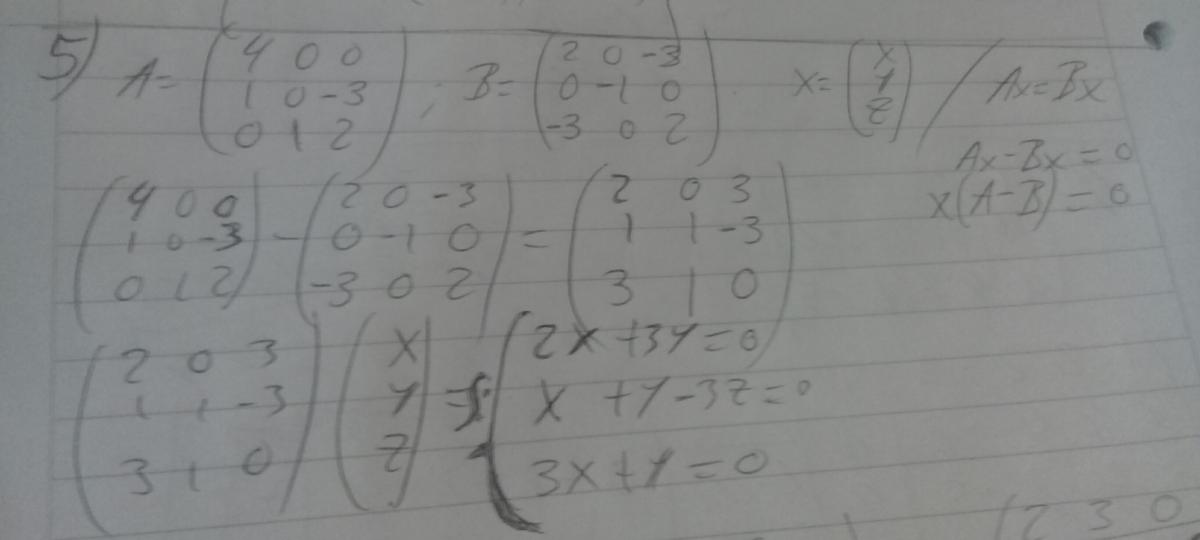 5) A= (4 0 0; 1 0 -3; 0 1 2) ; B= (2 0 -3; 0 -1 0; -3 0 2) x= (x; y; z) / Ax=Bx
Ax-Bx=0
x(A-B)=0
(4 0 0; 1 0 -3; 0 1 2) - (2 0 -3; 0 -1 0; -3 0 2) = (2 0 3; 1 1 -3; 3 1 0)
(2 0 3; 1 1 -3; 3 1 0) (x; y; z) = { 2x+3y=0
x+y-3z=0
3x+y=0
(2 3 0